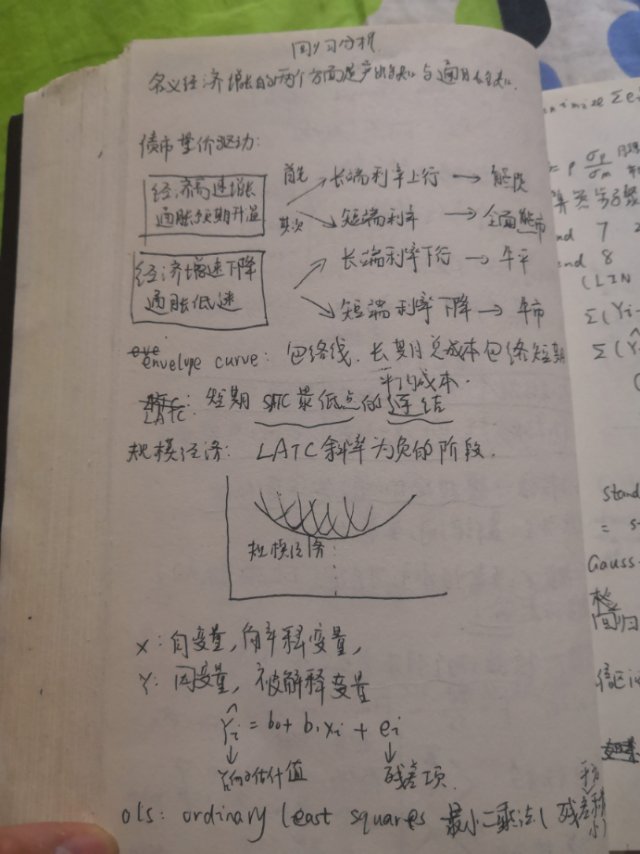 回归分析
名义经济增长的两个方面是产出缺口与通胀缺口.
债市量价驱动:
经济高速增长
通胀预期升温
首先 长端利率上行 → 熊陡
其次 短端利率 → 全面熊市
经济增速下降
通胀低迷
长端利率下行 → 牛平
短端利率下降 → 牛市
envelype curve: 包络线. 长期总成本包络短期
平均成本.
LATC: 短期 SATC最低点的连结
规模经济: LATC斜率为负的阶段.
规模经济
X: 自变量, 解释变量,
Y: 因变量, 被解释变量
Ŷi = b0+ b1xi + ei
Yi的估计值
残差项
ols: ordinary least squares 最小二乘法( 残差
平方
Σei
σp
σm
7
8
(LIN
Σ(Yi-
Σ(Ŷ
stand
= s
Gauss-
回归